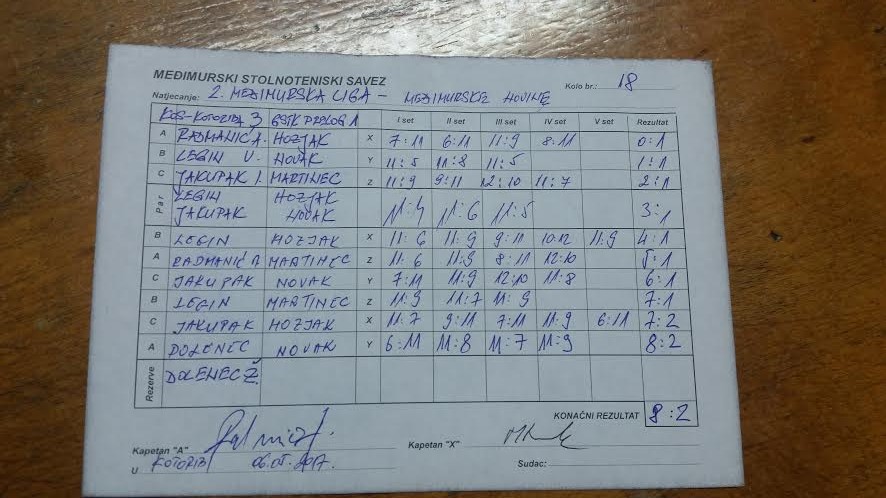 MEĐIMURSKI STOLNOTENISKI SAVEZ
Kolo br.: 18
Natjecanje: 2. MEĐIMURSKA LIGA - MEĐIMURSKE NOVINE
KOS-KOTORIBA 3 GSTK PRELOG 1 I set II set III set IV set V set Rezultat
A RADMANIĆ A. HOZJAK X 7:11 6:11 11:9 8:11 0:1
B LEGIN V. NOVAK Y 11:5 11:8 11:5 1:1
C JAKUPAK I. MARTINEC Z 11:9 9:11 12:10 11:7 2:1
Par LEGIN HOZJAK
JAKUPAK NOVAK 11:4 11:6 11:5 3:1
B LEGIN HOZJAK X 11:6 11:9 9:11 10:12 11:9 4:1
A RADMANIĆ A MARTINEC Z 11:6 11:9 8:11 12:10 5:1
C JAKUPAK NOVAK Y 7:11 11:9 12:10 11:8 6:1
B LEGIN MARTINEC Z 11:9 11:7 11:9 7:1
C JAKUPAK HOZJAK X 11:7 9:11 7:11 11:9 6:11 7:2
A DOLENEC NOVAK Y 6:11 11:8 11:7 11:9 8:2
Rezerve DOLENEC Ž.
KONAČNI REZULTAT 8:2
Kapetan "A" Kapetan "X"
U KOTORIBI 06.05.2017.
Sudac: